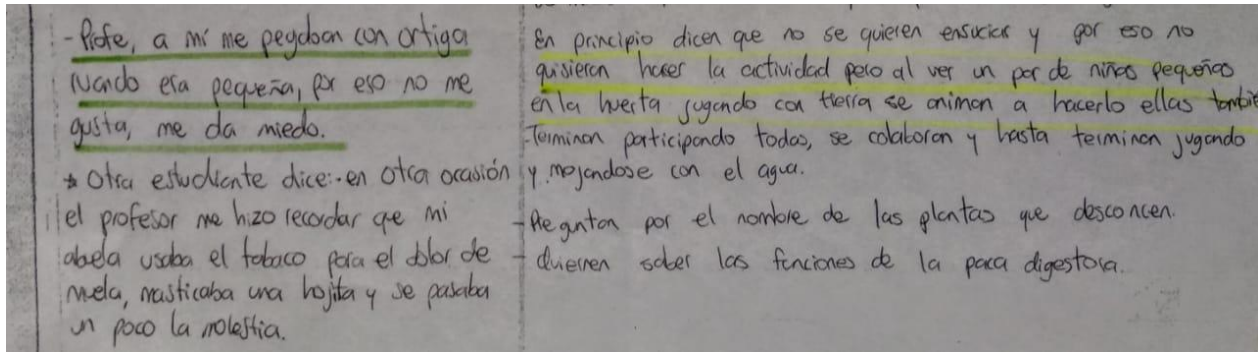 - Profe, a mí me pegaban con ortiga
cuando era pequeña, por eso no me
gusta, me da miedo.
* Otra estudiante dice: en otra ocasión
el profesor me hizo recordar que mi
abuela usaba el tabaco para el dolor de
muela, masticaba una hojita y se pasaba
un poco la molestia.
En principio dicen que no se quieren ensuciar y por eso no
quisieron hacer la actividad pero al ver un par de niñas pequeñas
en la huerta jugando con tierra se animan a hacerlo ellas tambié
- Terminan participando todas, se colaboran y hasta terminan jugando
y mojandose con el agua.
- Pregunton por el nombre de las plantas que desconcen.
- Quieren saber las funciones de la paca digestora.